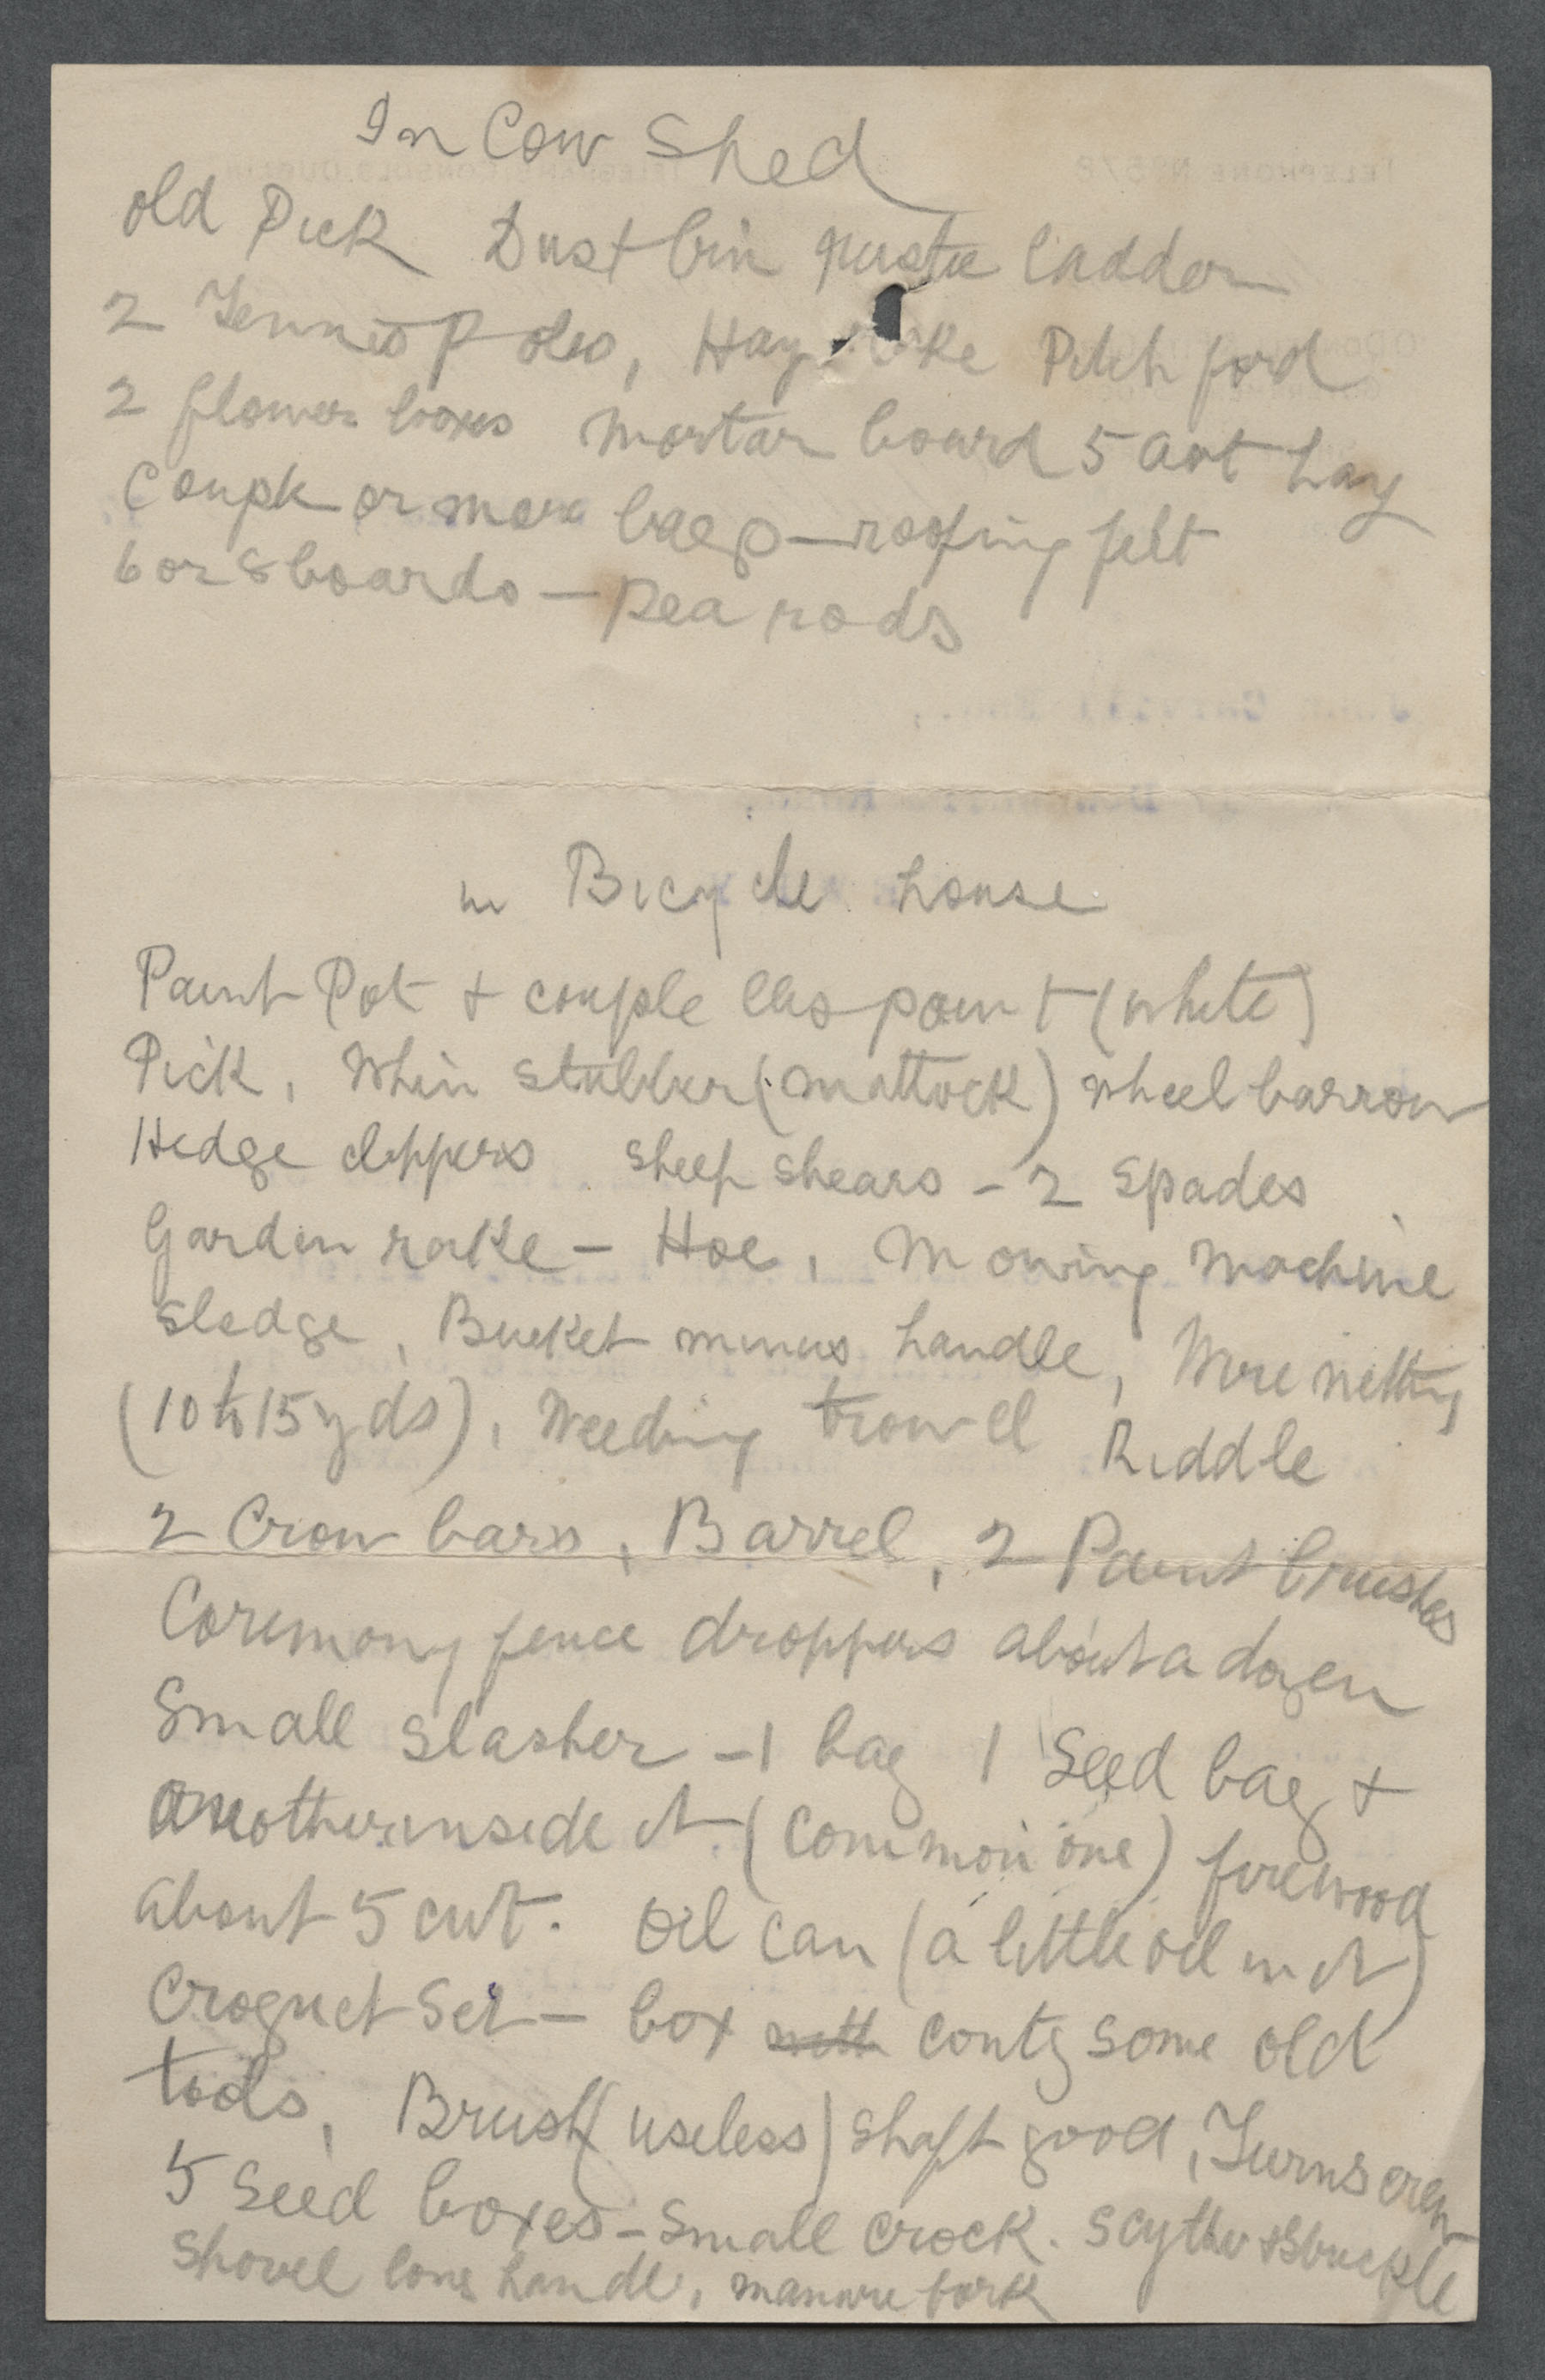 In Cow Shed
old Pick Dust bin rustic ladder
2 Tennis Poles, Hay rake Pitch ford
2 flower boxes mortar board 5 cwt hay
Couple or more bags — roofing felt
6 or 8 boards — Pea rods
in Bicycle house
Paint Pot + couple lbs paint (white)
Pick, Whin stubber (mattock) wheel barrow
Hedge clippers sheep shears - 2 spades
Garden rake - Hoe, Mowing Machine
Sledge, Bucket minus handle, Wire netting
(10 to 15 yds), Weeding trowel Riddle
2 Crow bars, Barrel, 2 Paint brushes
Coremony fence droppers about a dozen
Small slasher - 1 bag 1 Seed bag +
another inside it (common one) firewood
about 5 cwt. Oil can (a little oil in it)
Croquet Set - box with contg some old
tools, Brush (useless) shaft good, Turnscrew
5 Seed boxes - small crock. Scythe +
Shovel long handle, manure fork